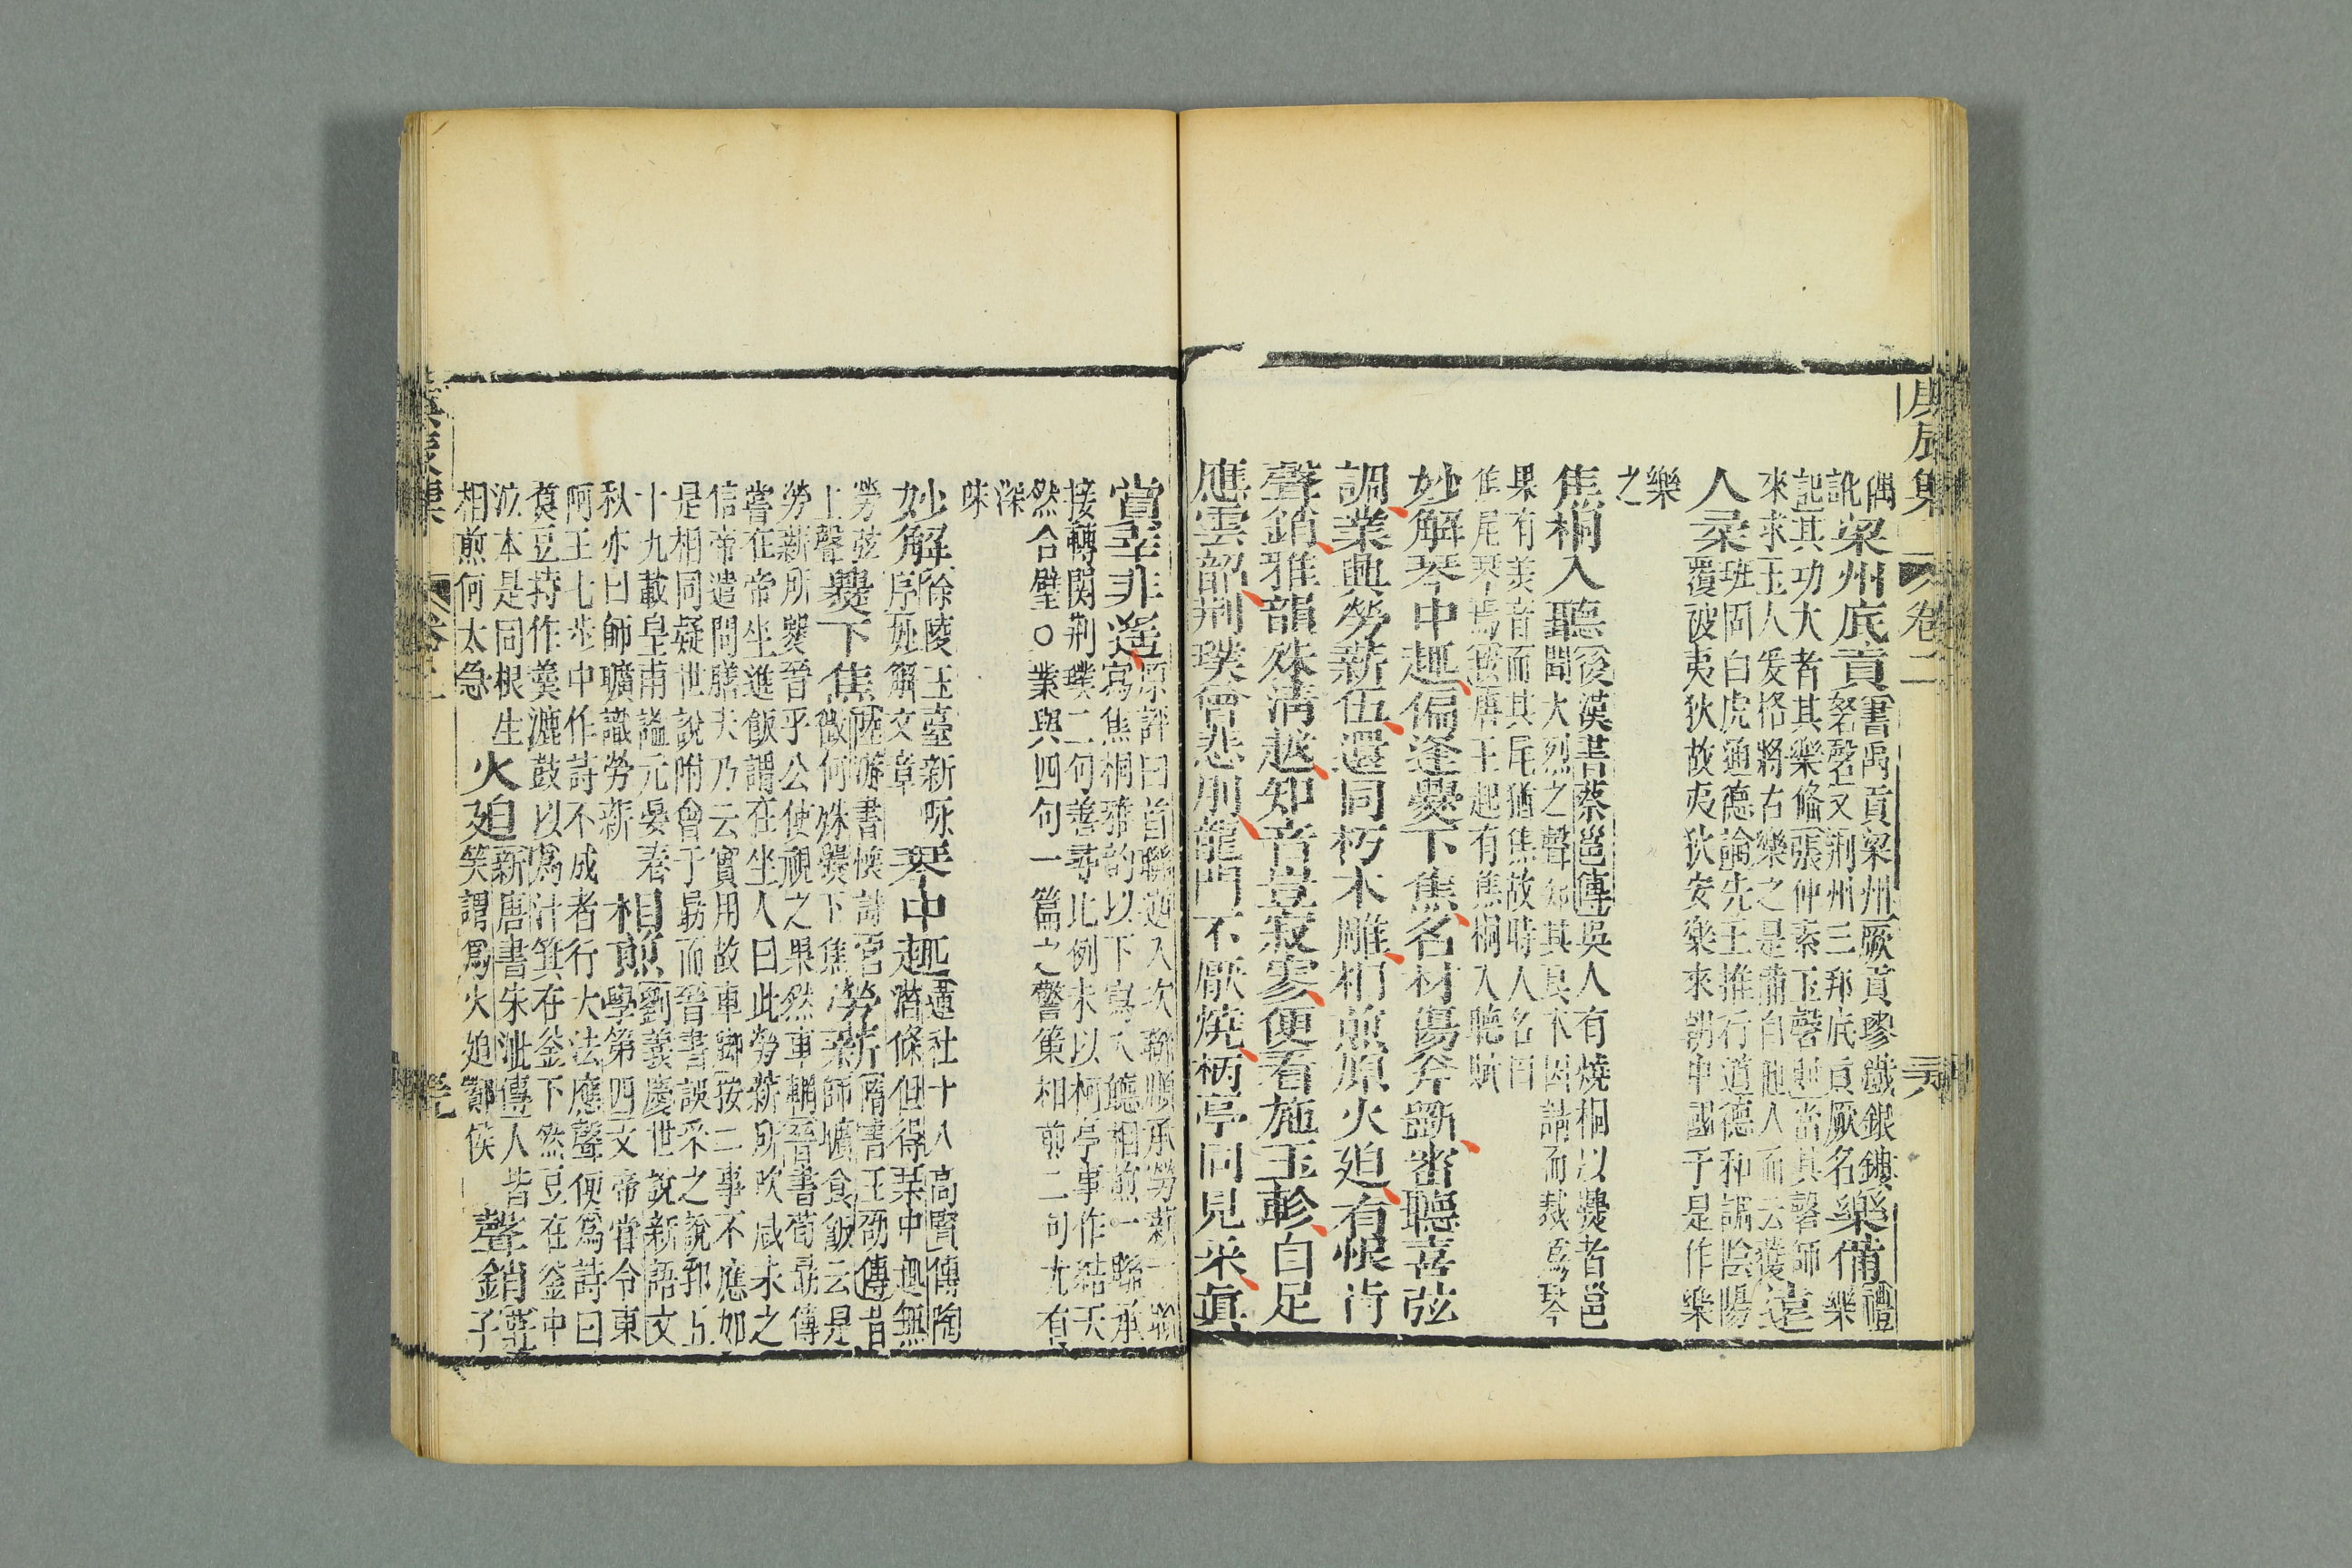 庚辰集 卷二
偶
訛 梁州底貢 書禹貢梁州厥貢璆鐵銀鏤
砮磬又荆州三邦底貢厥名 樂備 禮
樂
記其功大者其樂俻張仲素玉磬
師 遠
來求玉人爰格將右樂之是
自他人而云獲
人柔 班固白虎通德論先王推行道德和調陰陽
覆被夷狄故夷狄安樂來朝中國于是作樂
樂
之
焦桐入聽 後漢書蔡邕傳吳人有燒桐以爨者邕
聞大烈之聲知其良木因請而裁爲琴
果有美音而其尾猶焦故時人名曰
焦尾琴焉
唐王起有焦桐入聽賦
妙解琴中趣偏逢爨下焦名材傷斧斷密聽喜弦
調業與勞薪伍還同朽木雕相煎原火迫有恨
聲銷雅韻殊淸越知音豈寂寥便看施玉軫自足
應雲韶荆璞曾悲刖龍門不厭燒柯亭同見采眞
賞幸非遙 原評曰首聯
入次聯順承勞薪一聯
寫焦桐雅韵以下寫入聽相煎一聯承
接轉関荆璞二句善尋比例末以柯亭事作結天
然合璧○業與四句一篇之警策相煎二句尤有
深
味
妙解 徐陵玉臺新咏
序妙解文章 琴中趣 蓮社十八高賢傳陶
潛條但得琴中趣無
勞弦
上聲 爨下焦 陸游書懷詩
微何殊爨下焦 勞薪 隋書王劭傳昔
師曠食飯云是
勞薪所爨晉平公使視之果然車輞晉書荀勗傳
嘗在帝坐進飯謂在坐人曰此勞薪所炊咸未之
信帝遣問膳夫乃云實用故車脚按二事不應如
是相同疑世說附會于勗而晉書誤采之說郛
十九載皇甫謐元晏春
秋亦曰師曠識勞薪 相煎 劉義慶世說新語文
學第四文帝嘗令東
阿王七步中作詩不成者行大法應聲便爲詩曰
煑豆持作羹漉鼓以爲汁萁在釜下然豆在釜中
泣本是同根生
相煎何太急 火迫 新唐書朱泚傳人皆
笑謂爲火迫酇侯 聲銷 莊
子